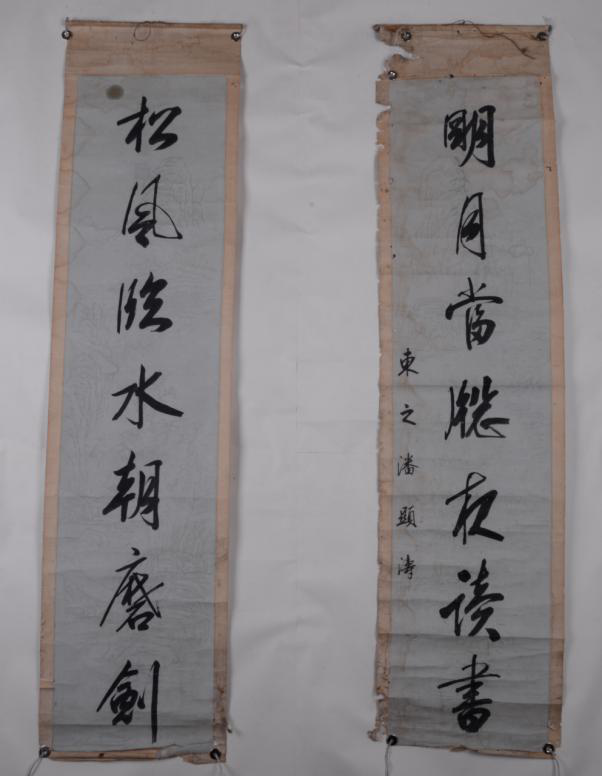 松風臨水朝磨劍
明月當牕夜讀書
東之潘顯濤